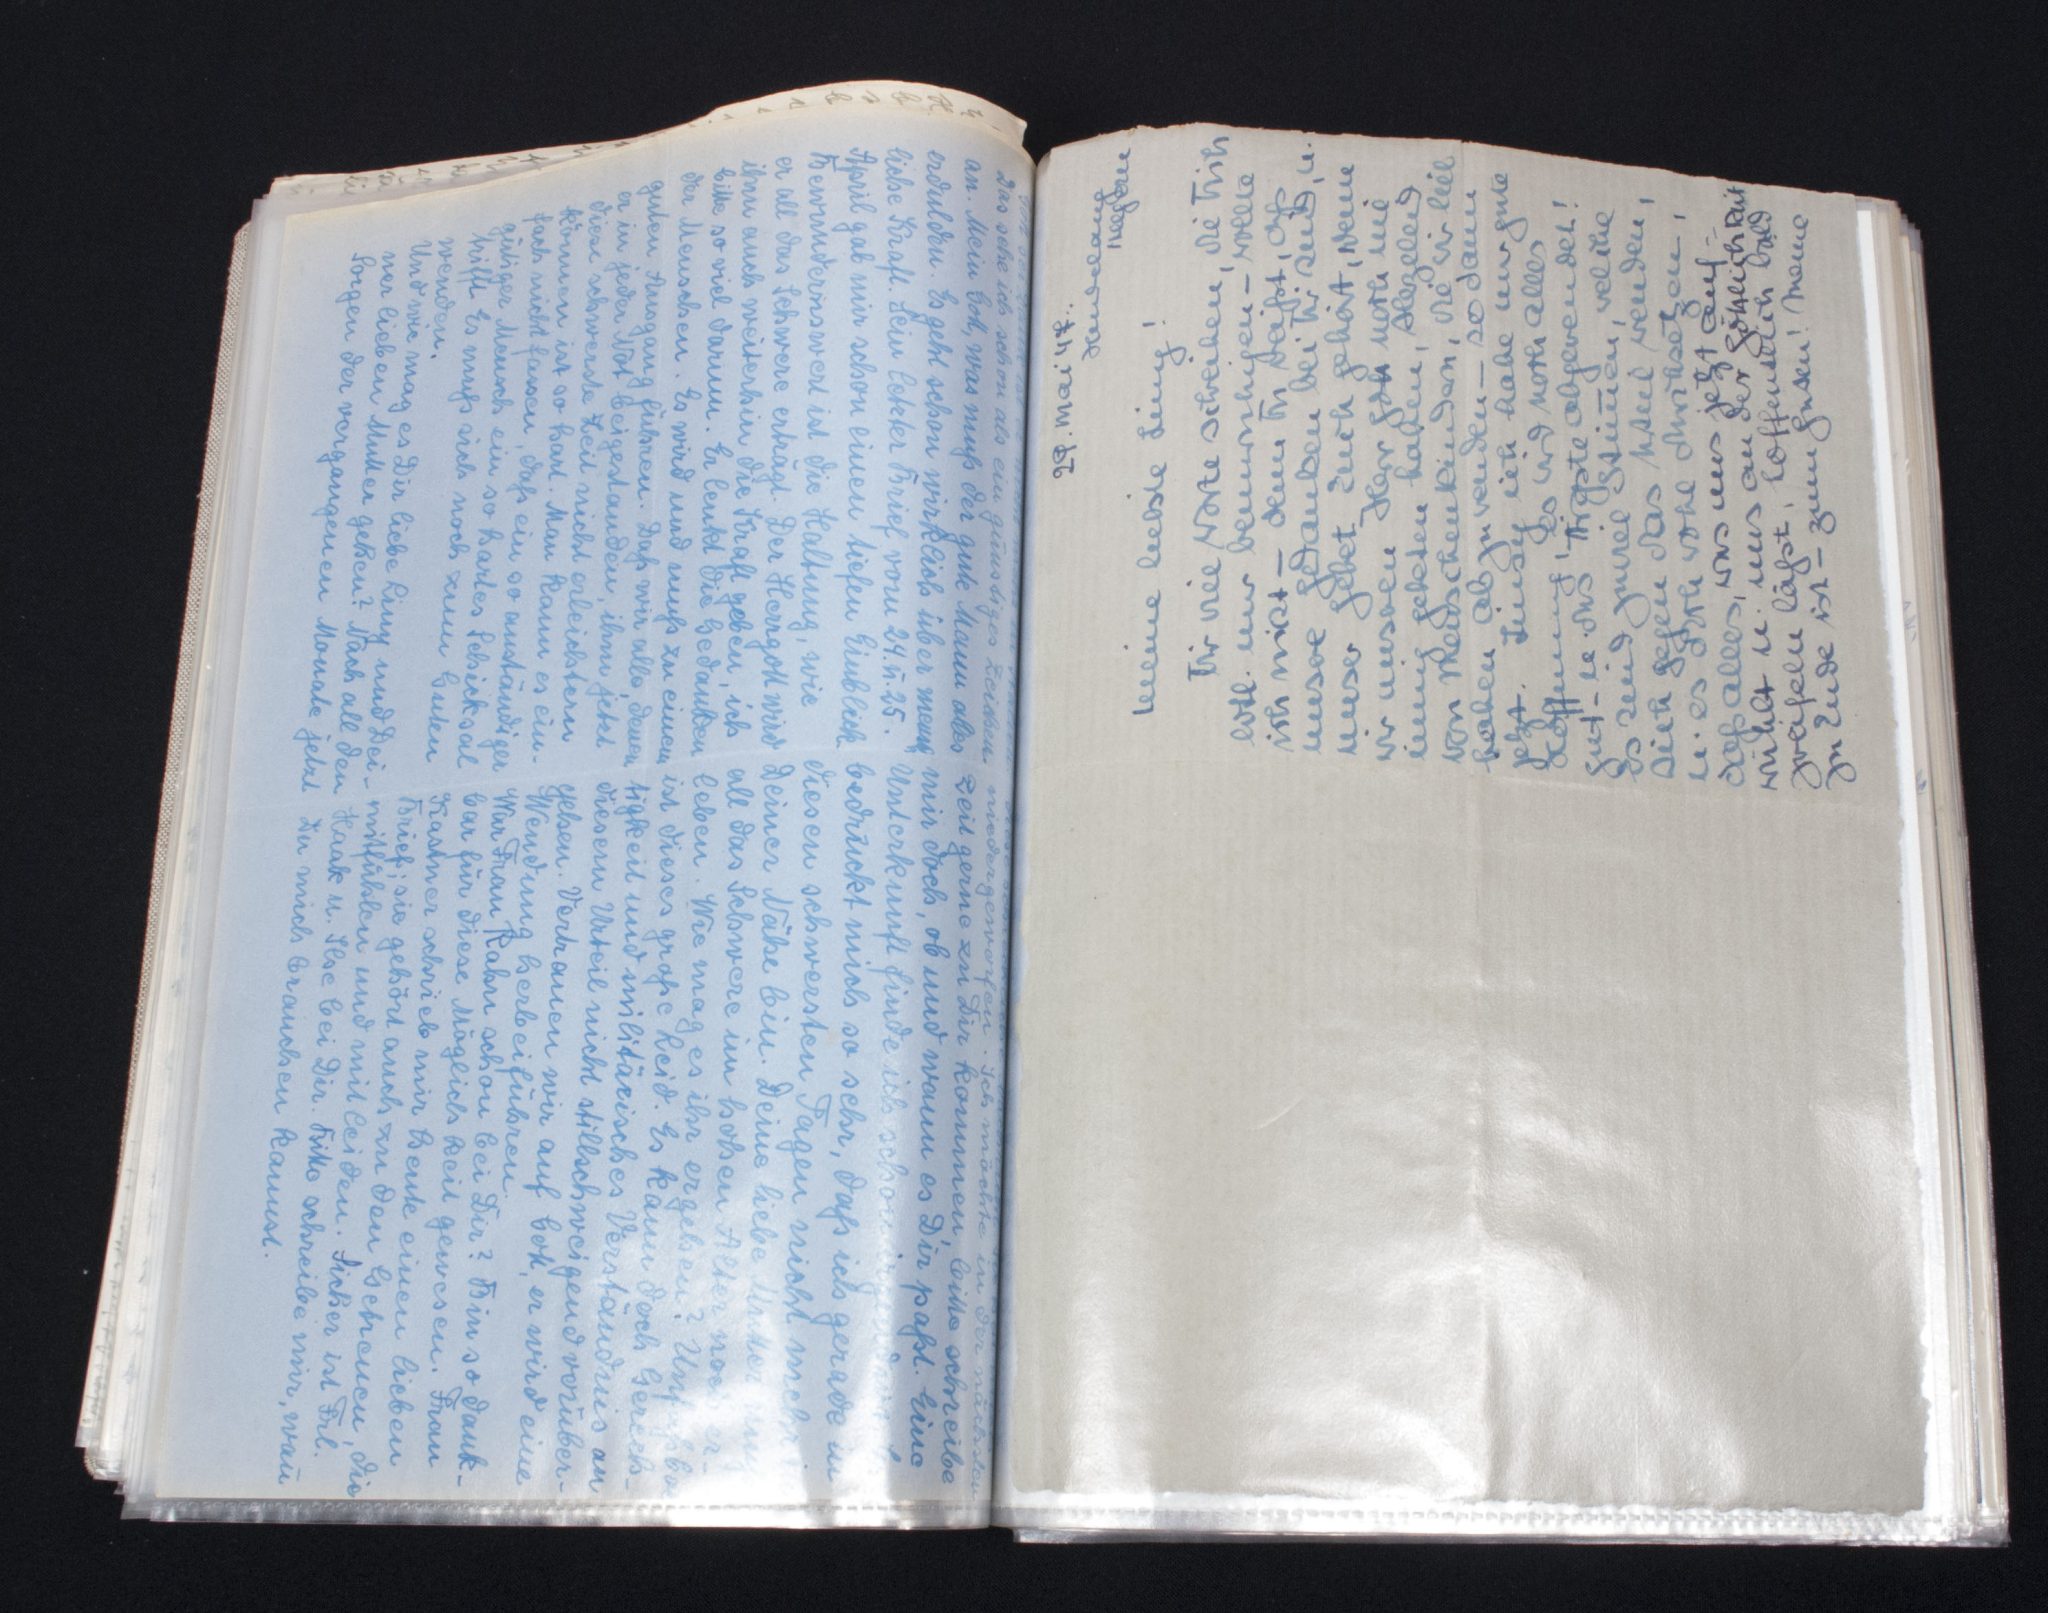 Das sehe ich schon als ein günstiges Zeichen
an. Mein Gott, was muß der gute Mann alles
erdulden. Es geht schon wirklich über mensch
liche Kraft. Sein letzter Brief vom 24. 25.
April gab mir schon einen tiefen Einblick
Bewundernswert ist die Haltung, wie
er all das Schwere erträgt. Der Herrgott wird
ihm auch weiterhin die Kraft geben, ich
bitte so viel darum. Er lenkt die Gedanken
der Menschen. Es wird und muß zu einem
guten Ausgang führen. Daß wir alle, denen
er in jeder Not beigestanden, ihm jetzt
diese schwerste Zeit nicht erleichtern
können ist so hart. Man kann es ein-
fach nicht fassen, daß ein so anständiger
gütiger Mensch ein so hartes Schicksal
trifft. Es muß sich noch zum Guten
wenden.
Und wie mag es Dir liebe Liny und Dei-
ner lieben Mutter gehen? Nach all den
Sorgen der vergangenen Monate jetzt
niedergeworfen. Ich möchte in der nächsten
Zeit gerne zu Dir kommen bitte schreibe
mir doch, ob und wann es Dir paßt. Eine
Unterkunft finde ich schon
bedrückt mich so sehr, daß ich gerade in
diesen schwersten Tagen nicht mehr in
Deiner Nähe bin. Deine liebe Mutter muß
all das Schwere im hohen Alter noch er-
leben. Wie mag es ihr ergehen? Unfaßbar
ist dieses große Leid. Es kann doch Gerech-
tigkeit und militärisches Verständnis an
diesem Urteil nicht stillschweigend vorüber-
gehen. Vertrauen wir auf Gott, er wird eine
Wendung herbeiführen.
War Frau Rahn schon bei Dir? Bin so dank-
bar für diese Möglichkeit gewesen. Frau
Kastner schrieb mir heute einen lieben
Brief, sie gehört auch zu den Getreuen, die
mitfühlen und mitleiden. Sicher ist Frl.
Haak u. Ilse bei Dir. Bitte schreibe mir, wann
Du mich brauchen kannst.
29. Mai 47.
Hindelang
Allgäu
Meine liebste Liny!
Dir viele Worte schreiben, die Dich
evtl. nur beunruhigen – wollte
ich nicht – denn Du weißt, daß
unsere Gedanken bei Dir sind, u.
unser Gebet Euch gehört, wenn
wir unseren Herr Gott noch nie
innig gebeten haben, Solch Leid
von Menschenkindern, die wir lieb
haben abzuwenden – so dann
jetzt. Linsey ich habe nur gute
Hoffnung! Es wird noch alles
gut – u. das Tiefste abgewendet!
Es sind zuviel Stimmen, welche
sich gegen das wenden,
u. es doch wohl durchsetzen,
daß alles, was uns jetzt auf-
wühlt u. uns an der Göttlichkeit
zweifeln läßt, hoffentlich bald
zu Ende ist – zum Guten! Meine